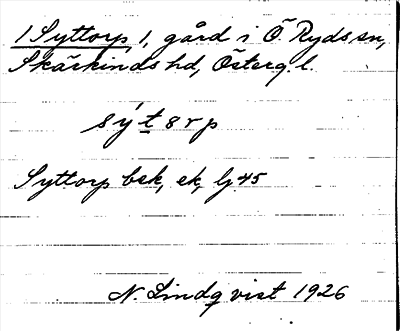 1 Syttorp, 1, gård i Ö Ryds sn,
Skärkinds hd, Österg. l.
sý t̲ 8 r p
Syttorp bsk, ek, lj 45
N. Lindqvist 1926